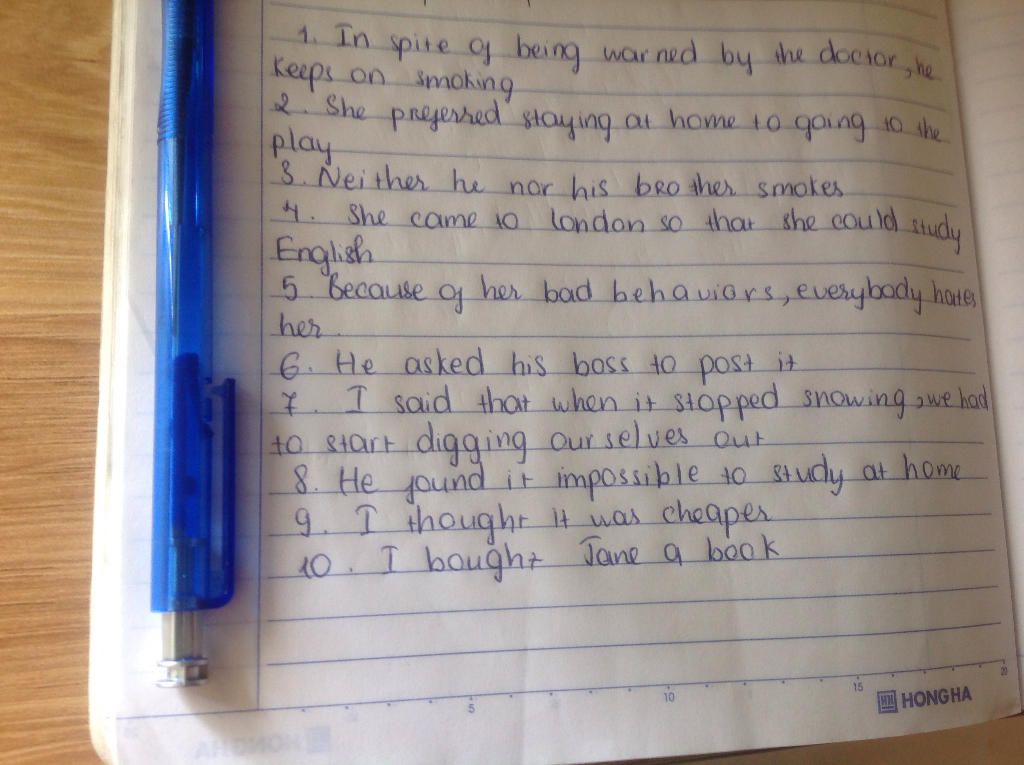 1. In spite of being warned by the doctor, he
keeps on smoking
2. She preferred staying at home to going to the
play
3. Neither he nor his brother smokes
4. She came to london so that she could study
English
5. Because of her bad behaviors, everybody hates
her.
6. He asked his boss to post it
7. I said that when it stopped snowing, we had
to start digging ourselves out
8. He found it impossible to study at home
9. I thought it was cheaper
10. I bought Jane a book
5 10 15 20
HONG HA